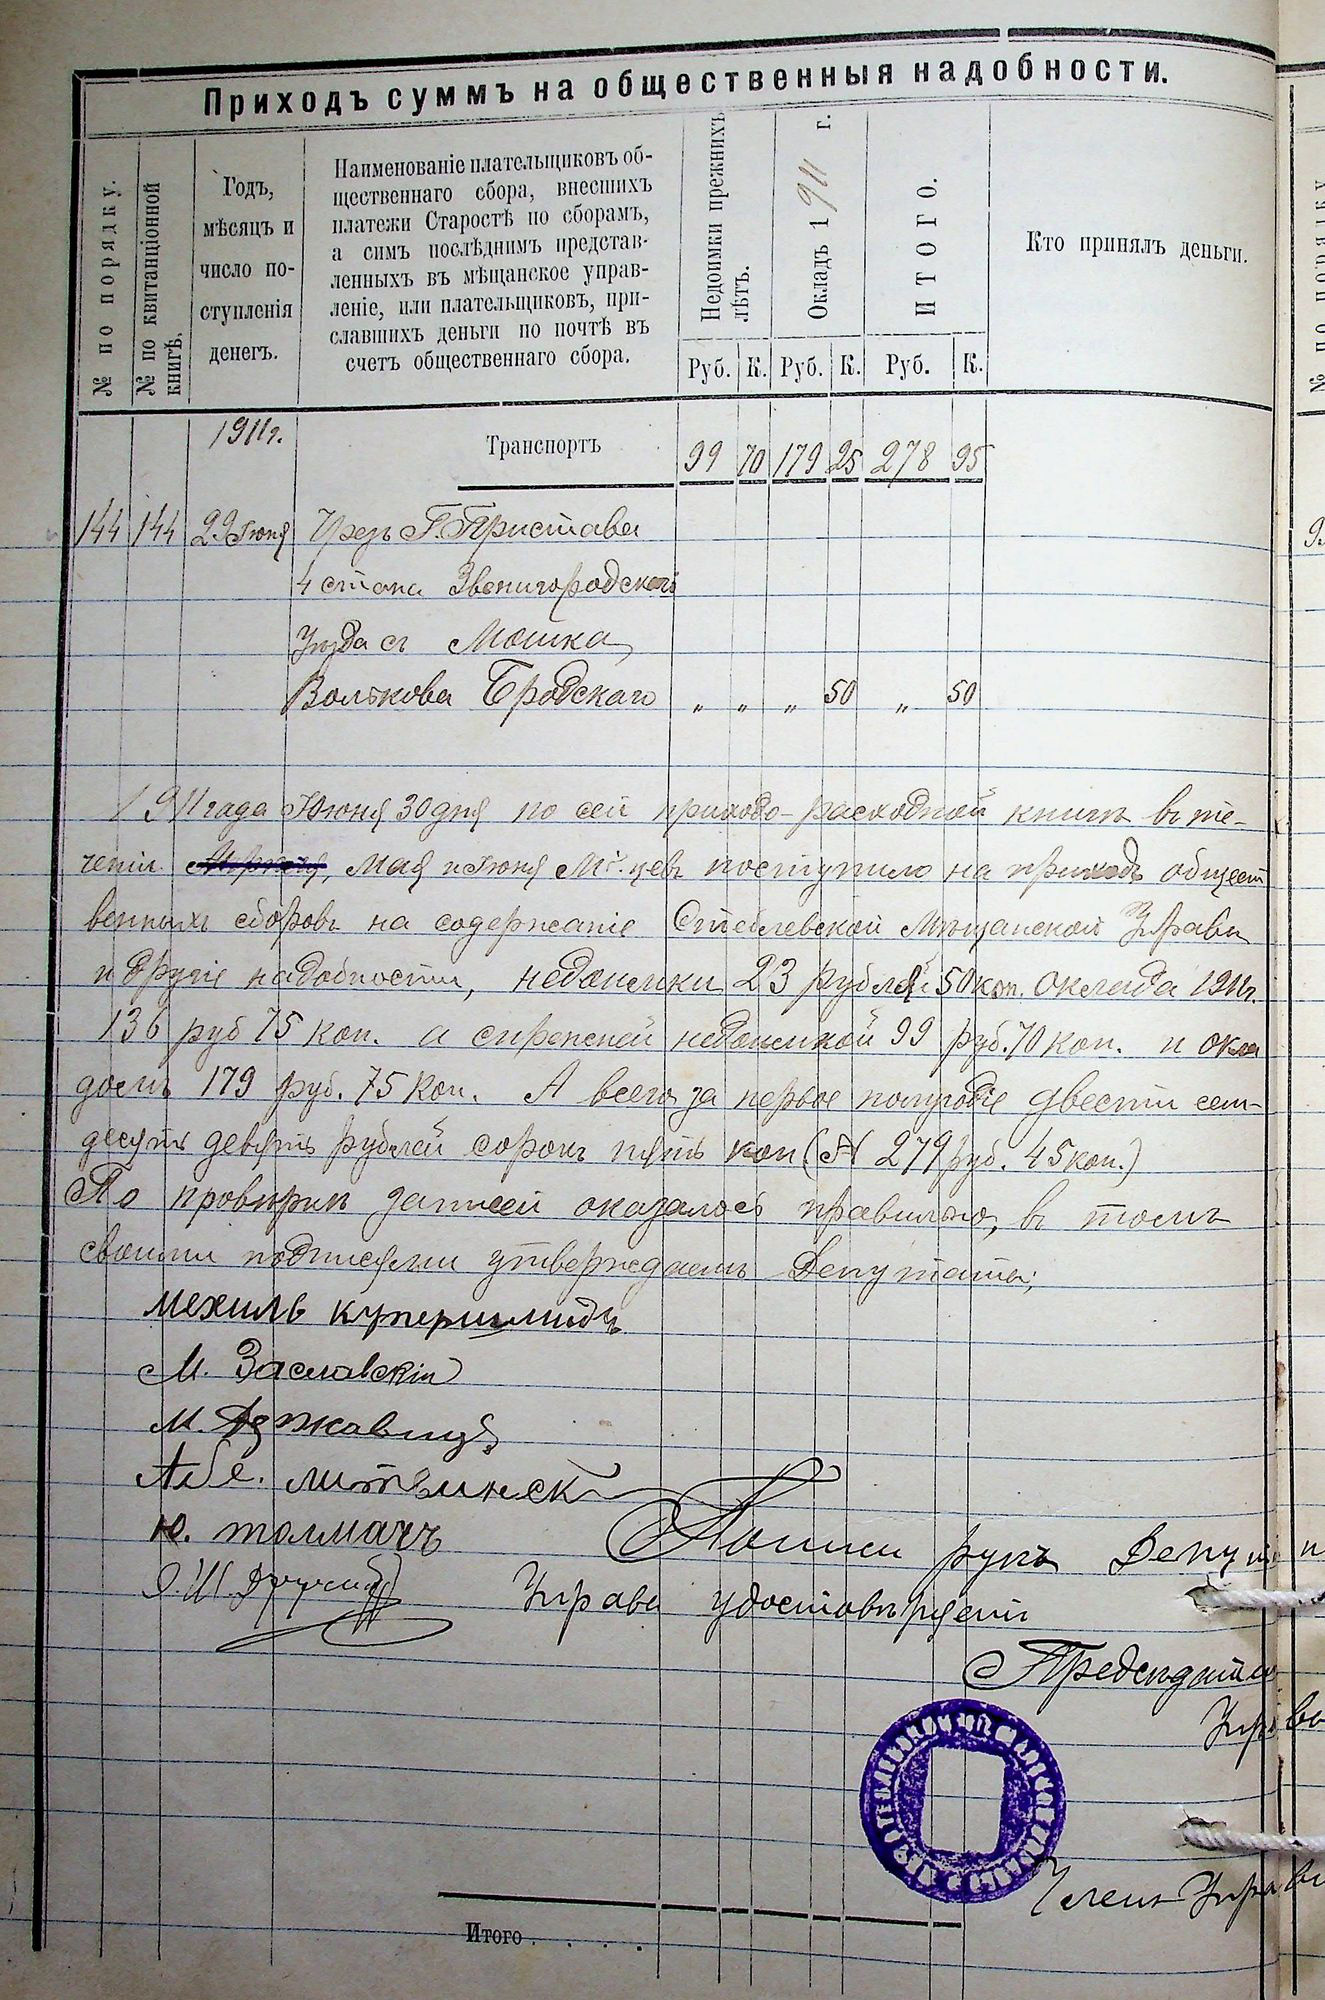 Приходъ суммъ на общественныя надобности.
№ по порядку.
№ по квитанціонной книгѣ.
Годъ,
мѣсяцъ и
число по-
ступленія
денегъ.
Наименованіе плательщиковъ об-
щественнаго сбора, внесшихъ
платежи Старостѣ по сборамъ,
а симъ послѣднимъ представ-
ленныхъ въ мѣщанское управ-
леніе, или плательщиковъ, при-
славшихъ деньги по почтѣ въ
счетъ общественнаго сбора.
Недоимки прежнихъ лѣтъ.
Окладъ 1911 г.
ИТОГО.
Кто принялъ деньги.
Руб. К. Руб. К. Руб. К.
1911 г. Транспортъ 99 70 179 25 278 95
144 144 29 Іюня Чрезъ Г. Пристава
4 стана Звенигородскаго
Уѣзда съ Мошка
Волькова Бродскаго " " " 50 " 50
1911 года Іюня 30 дня по сей приходо-расходной книгѣ въ те-
ченіи Апрѣля, Мая и Іюня М-цевъ поступило на приходъ общест
венныхъ сборовъ на содержаніе Стеблевской Мѣщанской Управы
и другіе надобности, недоимки 23 рублей 50 коп. оклада 1911 г.
136 руб 75 коп. а съ прежней недоимкой 99 руб. 70 коп. и окла
домъ 179 руб. 75 коп. А всего за первое полугодіе двести сем-
десятъ девять рублей сорокъ пять коп. (А 279 руб. 45 коп.)
По провѣркѣ записей оказалось правильно, въ томъ
своими подписями утверждаемъ Депутаты:
Мехиль Купершмидъ
М. Заславскій
М. Державецъ
Абе. Литвинск
Ю. Толмачъ
Подписи рукъ Депут
Управы удостовѣряетъ
Предсѣдатель
Управы
Членъ Управы
Итого . . . .